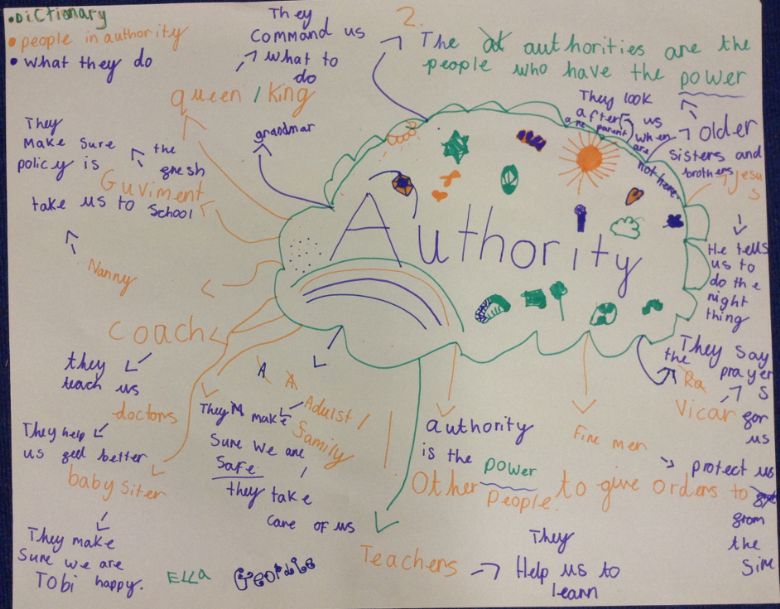 •DiCtionary
• people in authority
• what they do
They
Command us
what to
do
queen / King
grandmar
2.
The authorities are the
people who have the power
They look
after us
are parent when
are
not here
older
Sisters and
brothers
Jesus
He tells
us to
do the
right
thing
They
Make sure the
policy is fresh
Guviment
take us to School
Nanny
Authority
Coach
they
teach us
doctors
They help
us feel better
baby siter
They make
Sure we are
happy.
A A
Adulst /
Family
They make
Sure we are
Safe
they take
care of us
authority
is the power
to give orders to
Other people.
Fire men
protect us
from
the
Fire
the
Vicar
They Say
prayer
s
for
us
Teachers
They
Help us to
learn
TObi
ELLa
Georgie